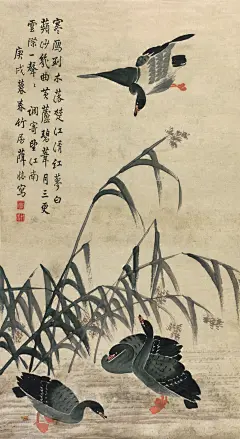 寒雁到木落楚江清红蓼白
蘋沙几曲黄蘆碧葦月三更
雲際一聲聲 調寄望江南
庚戌暮春竹居薛
寫